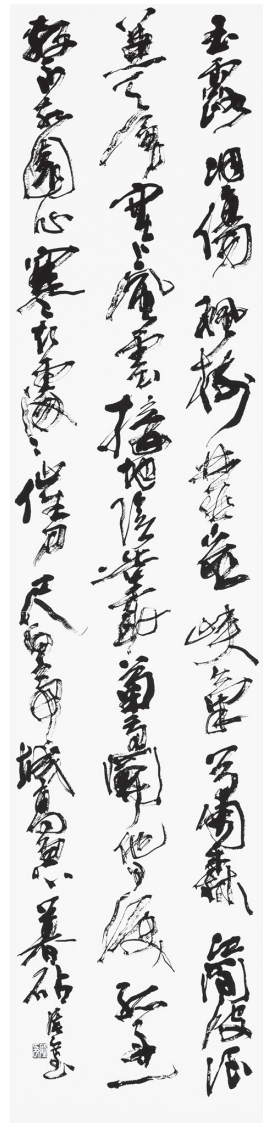 玉露凋傷楓樹林巫山巫峽氣蕭森江間波浪
兼天湧塞上風雲接地陰叢菊兩開他日淚孤舟一
繫故園心寒衣處〻催刀尺白帝城高急暮砧